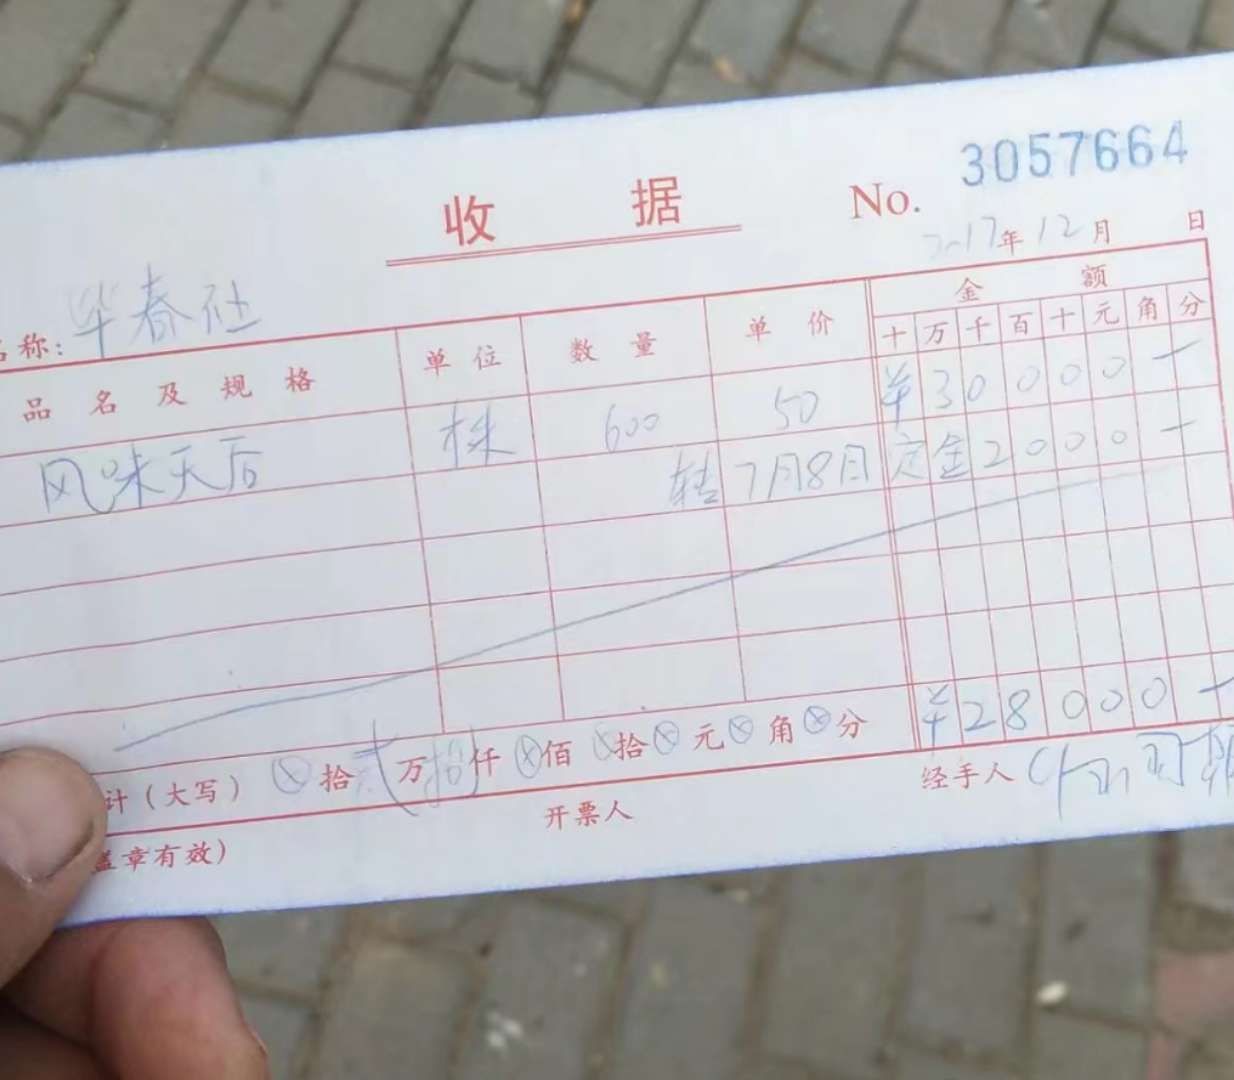 收 据
No. 3057664
2017年12月 日
名称: 华春社
品名及规格 单位 数量 单价 金额
十 万 千 百 十 元 角 分
风味天后 株 600 50 ¥30000—
转7月8日 定金2000—
计（大写） ⊗拾贰万捌仟⊗佰⊗拾⊗元⊗角⊗分 ¥28000—
盖章有效） 开票人 经手人